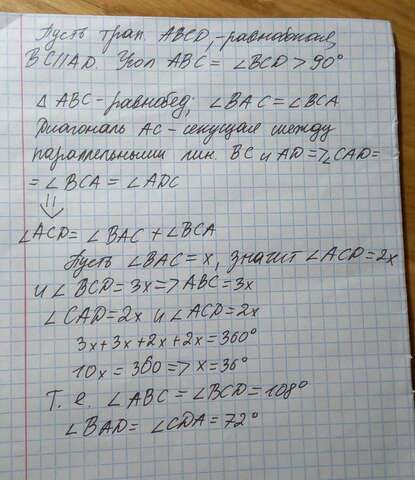 Пусть трап. ABCD,-равнобокая,
BC||AD. Угол ABC = ∠BCD > 90°
Δ ABC-равнобед; ∠BAC = ∠BCA
Диагональ AC-секущая между
параллельными лин. BC и AD =>∠CAD=
= ∠BCA = ∠ADC
∠ACD = ∠BAC + ∠BCA
Пусть ∠BAC = x, значит ∠ACD = 2x
и ∠BCD = 3x => ABC = 3x
∠CAD = 2x и ∠ACD = 2x
3x + 3x + 2x + 2x = 360°
10x = 360 => x = 36°
Т. е. ∠ABC = ∠BCD = 108°
∠BAD = ∠CDA = 72°